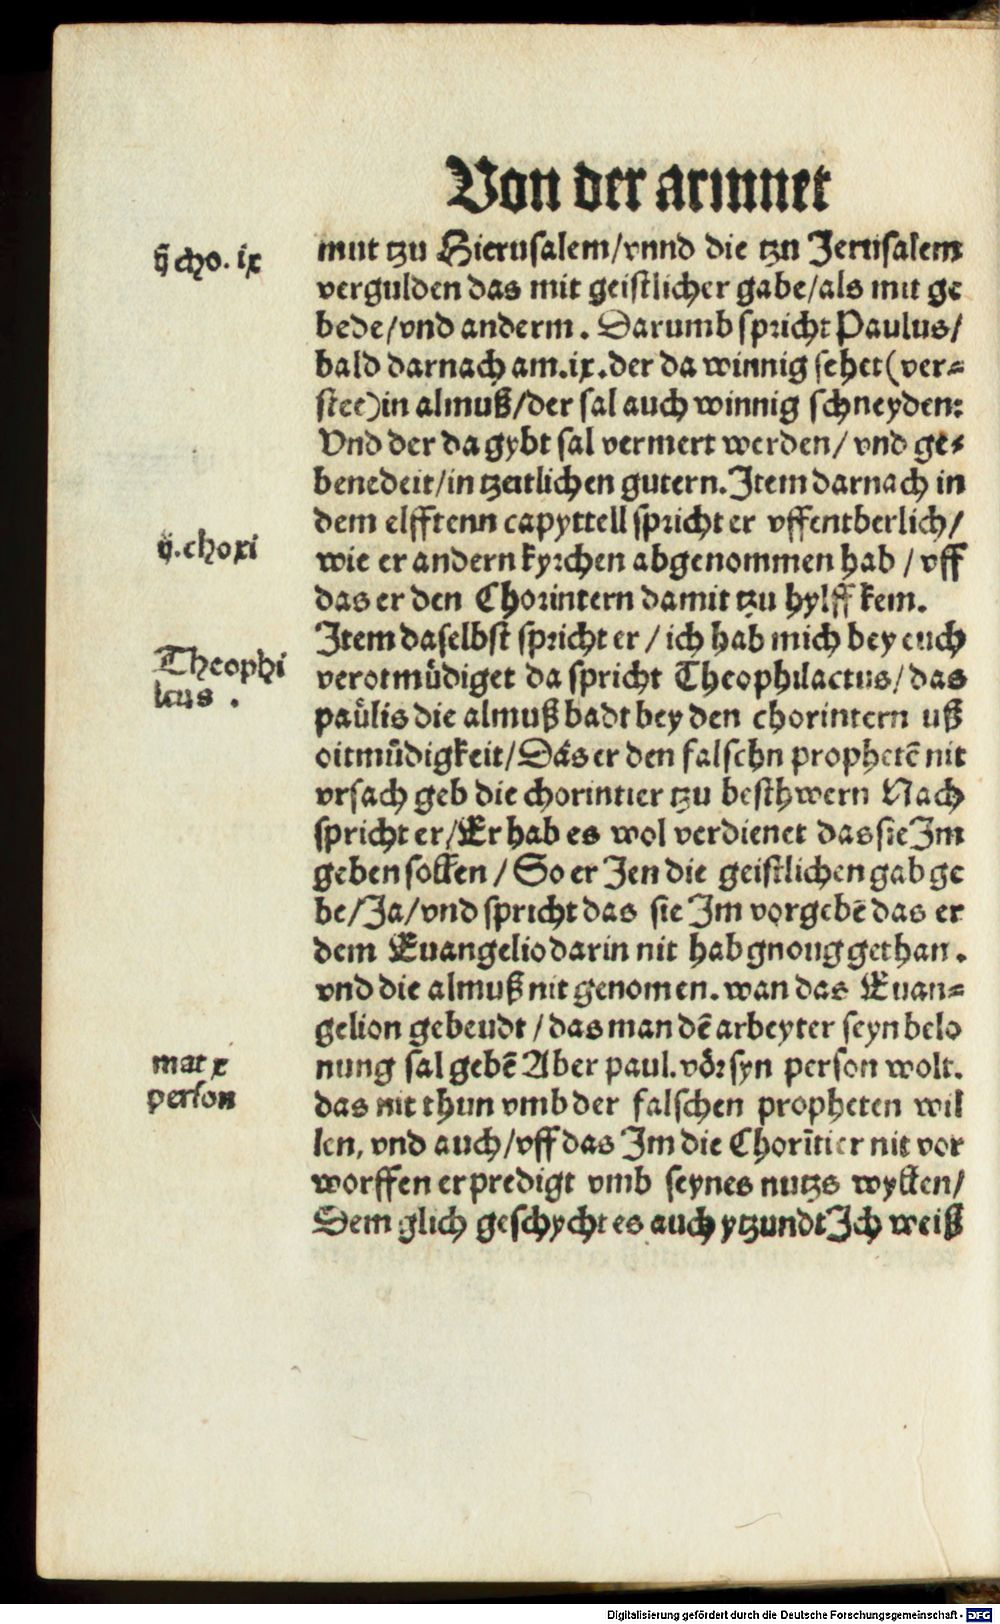 Von der armuet
ij cho. ix
mut tzu Hierusalem/vnnd die tzu Jerusalem
vergulden das mit geistlicher gabe/als mit ge
bede/vnd anderm. Darumb spricht Paulus/
bald darnach am.ix.der da winnig sehet(ver=
stee)in almuß/der sal auch winnig schneyden:
Vnd der da gybt sal vermert werden/ vnd ge=
benedeit/in tzeitlichen gutern. Item darnach in
dem elfftenn capyttell spricht er vffentberlich/
ij. cho xi
wie er andern kyrchen abgenommen hab / vff
das er den Chorintern damit tzu hylff kem.
Item daselbst spricht er / ich hab mich bey euch
Theophi
lcus .
verotmüdiget da spricht Theophilactus/ das
paulis die almuß badt bey den chorintern uß
oitmüdigkeit/Das er den falschn prophetē nit
vrsach geb die chorintier tzu besthwern Nach
spricht er/Er hab es wol verdienet das sie Im
geben sollen / So er Jen die geistlichen gab ge
be/Ja/vnd spricht das sie Im vorgebē das er
dem Euangelio darin nit hab gnoug gethan.
vnd die almuß nit genomen. wan das Euan=
gelion gebeudt / das man dē arbeyter seyn belo
mat x
person
nung sal gebē Aber paul. vor syn person wolt.
das nit thun vmb der falschen propheten wil
len, vnd auch/vff das Im die Chorītier nit vor
worffen er predigt vmb seynes nutzs wyllen/
Dem glich geschycht es auch ytzundt Ich weiß
Digitalisierung gefördert durch die Deutsche Forschungsgemeinschaft - DFG